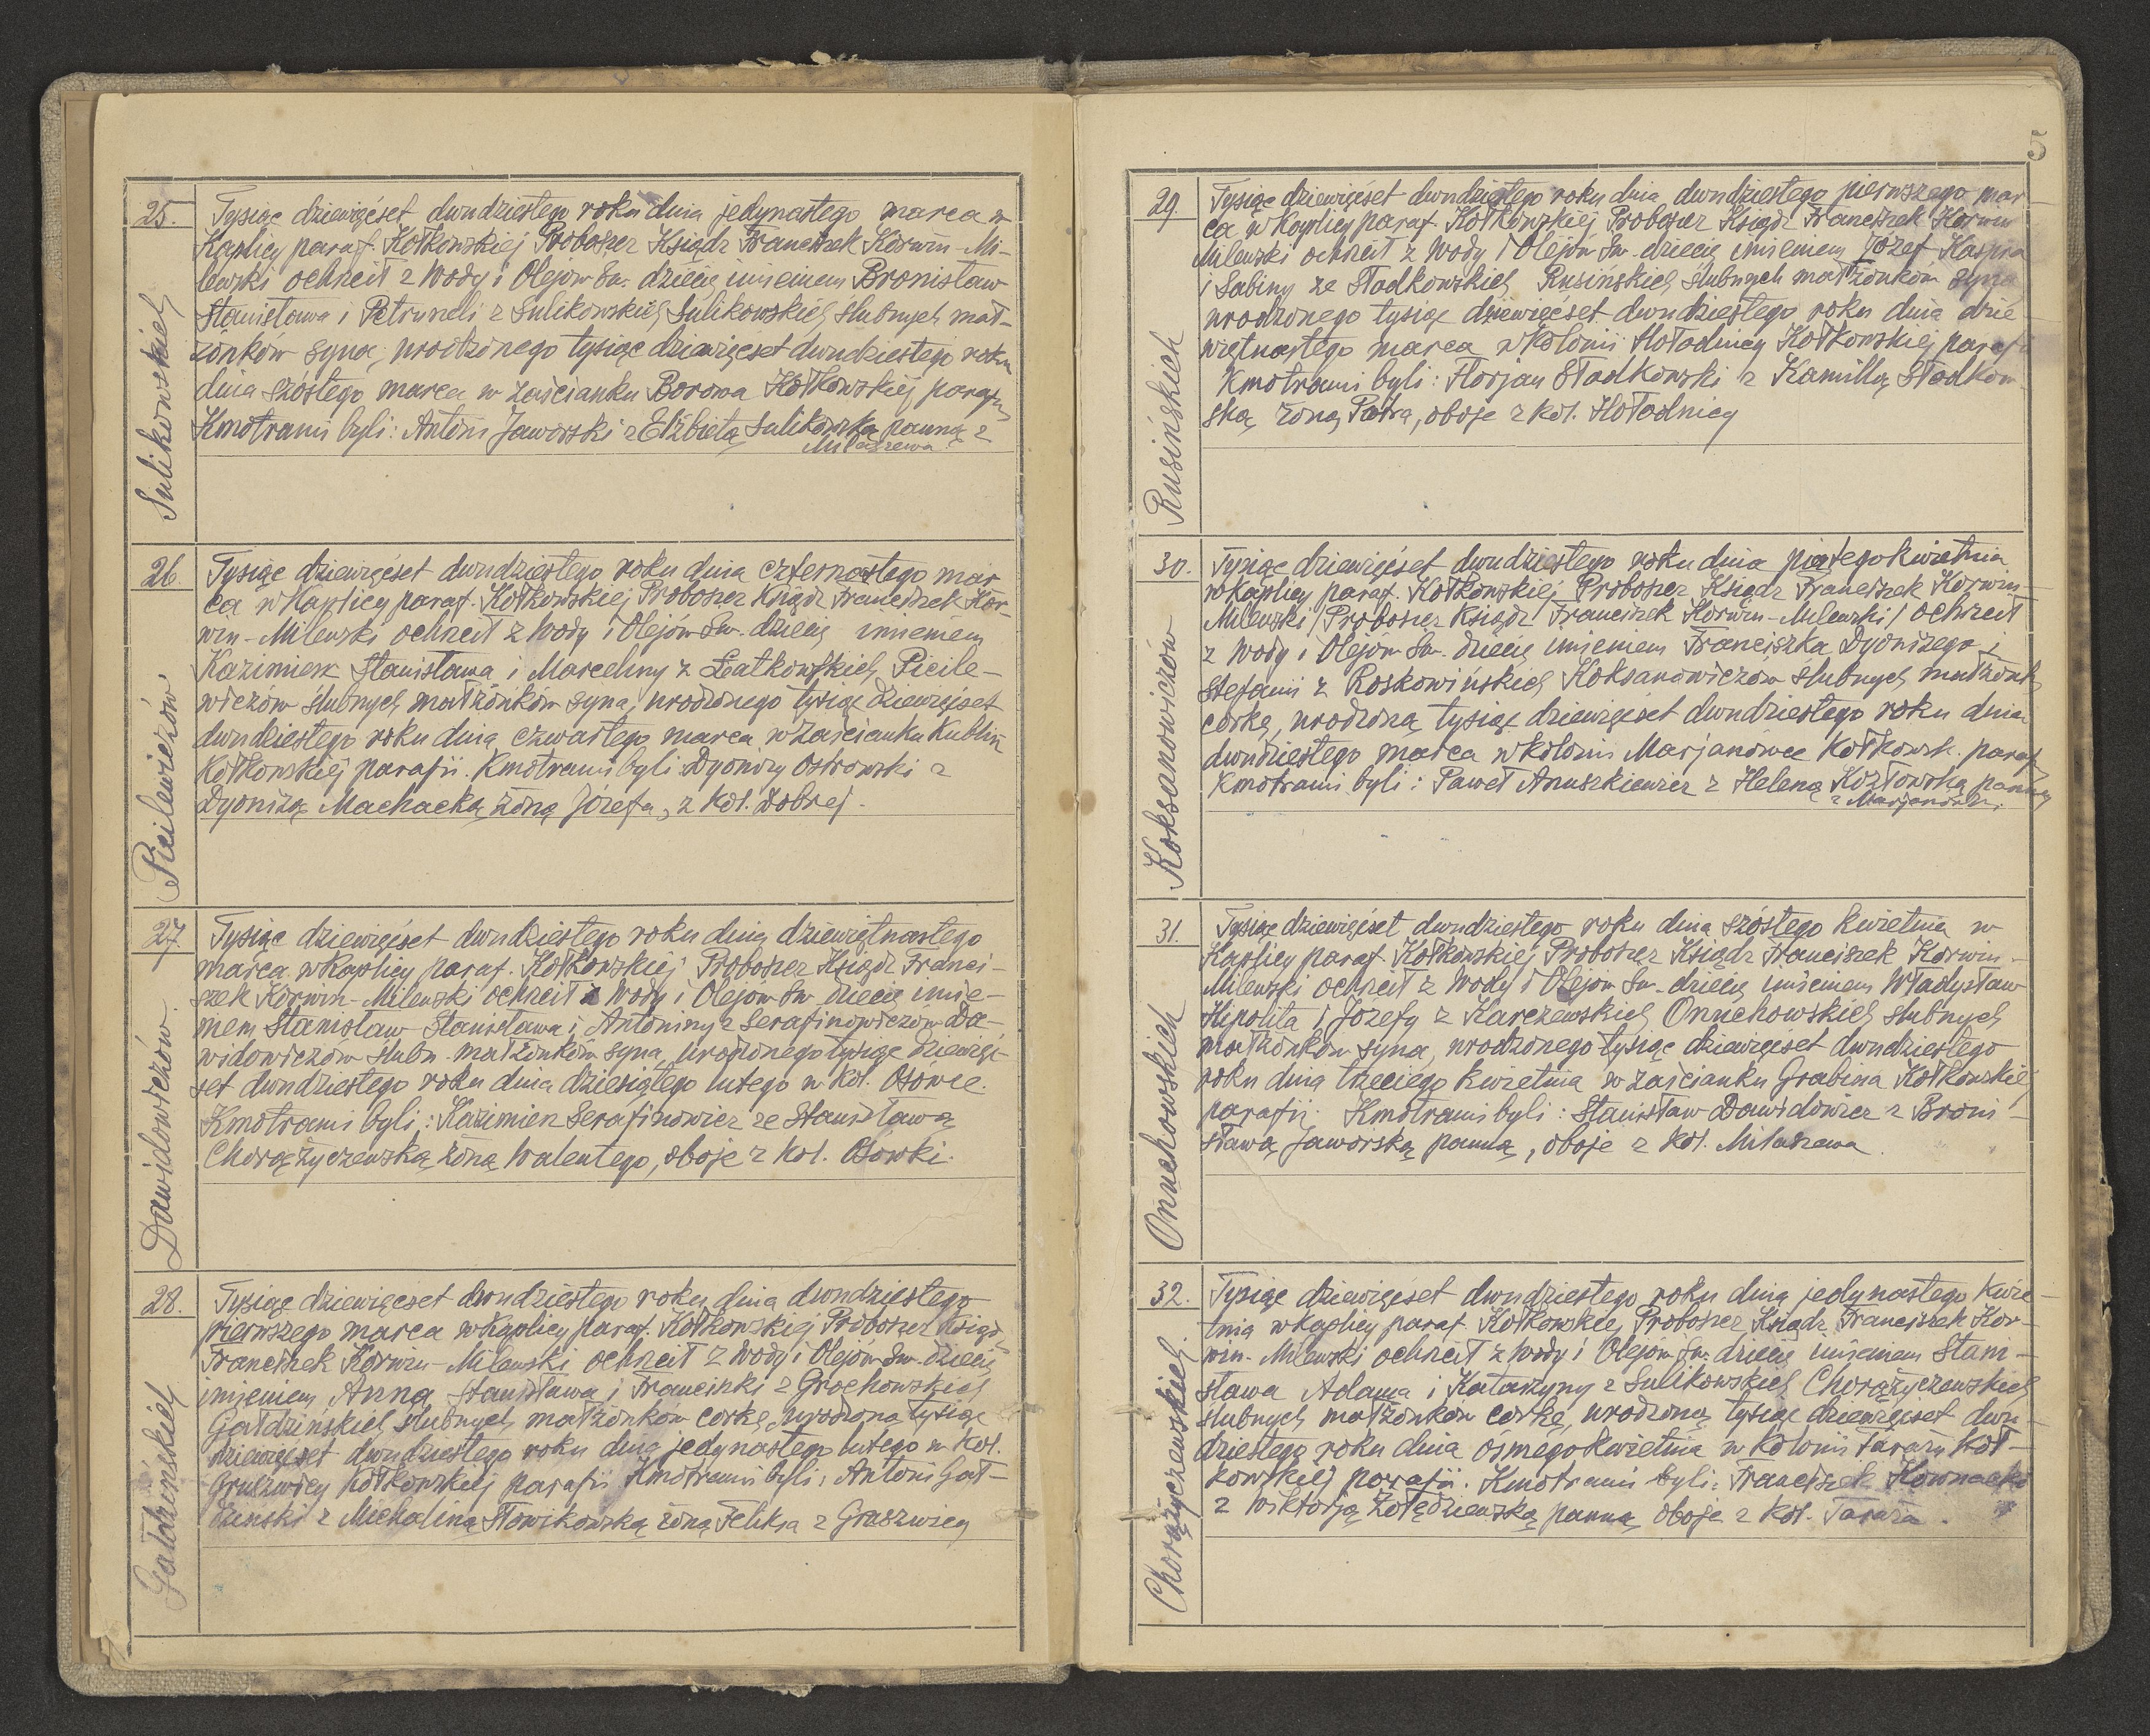 25.
Sulikowskich
Tysiąc dziewięćset dwudziestego roku dnia jedynastego marca w
Kaplicy paraf. Kołkowskiej Proboszcz Ksiądz Franciszek Korwin-Mi-
lewski ochrzcił z Wody i Olejów Św. dziecię imieniem Bronisław
Stanisława i Petruneli z Sulikowskich Sulikowskich ślubnych mał-
żonków syna, urodzonego tysiąc dziewięćset dwudziestego roku
dnia szóstego marca w zaścianku Borowa Kołkowskiej parafii
Kmotrami byli: Antoni Jaworski z Elżbietą Sulikowską panną z
Milaszewa.
26.
Picilewiczów
Tysiąc dziewięćset dwudziestego roku dnia czternastego mar
ca w Kaplicy paraf. Kołkowskiej Proboszcz Ksiądz Franciszek Kor-
win-Milewski ochrzcił z Wody i Olejów Św. dziecię imieniem
Kazimierz Stanisława i Marceliny z Picile-
wiczów ślubnych małżonków syna, urodzonego tysiąc dziewięćset
dwudziestego roku dnia czwartego marca w zaścianku Kublin
Kołkowskiej parafii. Kmotrami byli Dyonizy Ostrowski z
Dyonizą Machacką żoną Józefa, z kol. Dobrej.
27.
Dawidowiczów
Tysiąc dziewięćset dwudziestego roku dnia dziewiętnastego
marca w Kaplicy paraf. Kołkowskiej Proboszcz Ksiądz Franci-
szek Korwin-Milewski ochrzcił z Wody i Olejów Św. dziecię imie-
niem Stanisław Stanisława i Antoniny z Serafinowiczów Da-
widowiczów ślubn. małżonków syna, urodzonego tysiąc dziewię-
set dwudziestego roku dnia dziesiątego lutego w kol. Osówce.
Kmotrami byli: Kazimierz Serafinowicz ze Stanisławą
Chorążyczewską żoną Walentego, oboje z kol. Osówki.
28.
Gałdzińskich
Tysiąc dziewięćset dwudziestego roku dnia dwudziestego
pierwszego marca w Kaplicy paraf. Kołkowskiej Proboszcz Ksiądz
Franciszek Korwin-Milewski ochrzcił z Wody i Olejów Św. dziecię
imieniem Anna Stanisława i Franciszki z Grochowskich
Gałdzińskich ślubnych małżonków corkę, urodzoną tysiąc
dziewięćset dwudziestego roku dnia jedynastego lutego w kol.
Gruszwicy Kołkowskiej parafii Kmotrami byli: Antoni Gał-
dzinski z Michaliną Słowikowską żoną Feliksa z Gruszwicy
5
29.
Rusińskich
Tysiąc dziewięćset dwudziestego roku dnia dwudziestego pierwszego mar
ca w Kaplicy paraf. Kołkowskiej Proboszcz Ksiądz Franciszek Korwin
Milewski ochrzcił z Wody i Olejów Św. dziecię imieniem Józef Kaspra
i Sabiny ze Stadkowskich Rusińskich ślubnych małżonków syna
urodzonego tysiąc dziewięćset dwudziestego roku dnia dzie
więtnastego marca w kolonii Hołodnicy Kołkowskiej parafi
Kmotrami byli: Florjan Stadkowski z Kamillą Stadkow
ską żoną Piotra, oboje z kol. Hołodnicy
30.
Koksanowiczów
Tysiąc dziewięćset dwudziestego roku dnia piątego kwietnia
w Kaplicy paraf. Kołkowskiej Proboszcz Ksiądz Franciszek Korwin-
Milewski /Proboszcz Ksiądz Franciszek Korwin-Milewski/ ochrzcił
z Wody i Olejów Św. dziecię imieniem Franciszka Dyonizego i
Stefanii z Roskowińskich Koksanowiczów ślubnych małżonk.
corkę, urodzoną tysiąc dziewięćset dwudziestego roku dnia
dwudziestego marca w kolonii Marjanówce Kołkowsk. paraf.
Kmotrami byli: Paweł Anuszkiewicz z Heleną Kozłowską panną
z Marjanówki.
31.
Onuchowskich
Tysiąc dziewięćset dwudziestego roku dnia szóstego kwietnia w
Kaplicy paraf. Kołkowskiej Proboszcz Ksiądz Franciszek Korwin-
Milewski ochrzcił z Wody i Olejów Św. dziecię imieniem Władysław
Hipolita i Józefy z Karczewskich Onuchowskich ślubnych
małżonków syna, urodzonego tysiąc dziewięćset dwudziestego
roku dnia trzeciego kwietnia w zaścianku Grabina Kołkowskiej
parafii. Kmotrami byli: Stanisław Dawidowicz z Broni-
sławą Jaworską panną, oboje z kol. Milaszewa.
32.
Chorążyczewskich
Tysiąc dziewięćset dwudziestego roku dnia jedynastego kwie-
tnia w Kaplicy paraf. Kołkowskiej Proboszcz Ksiądz Franciszek Kor-
win-Milewski ochrzcił z Wody i Olejów Św. dziecię imieniem Stani-
sława Adama i Katarzyny z Sulikowskich Chorążyczewskich
ślubnych małżonków corkę, urodzoną tysiąc dziewięćset dwu-
dziestego roku dnia ósmego kwietnia w kolonii Taraża Koł-
kowskiej parafii. Kmotrami byli: Franciszek Kownacki
z Wiktorją Żołędziewską panną oboje z kol. Taraża.